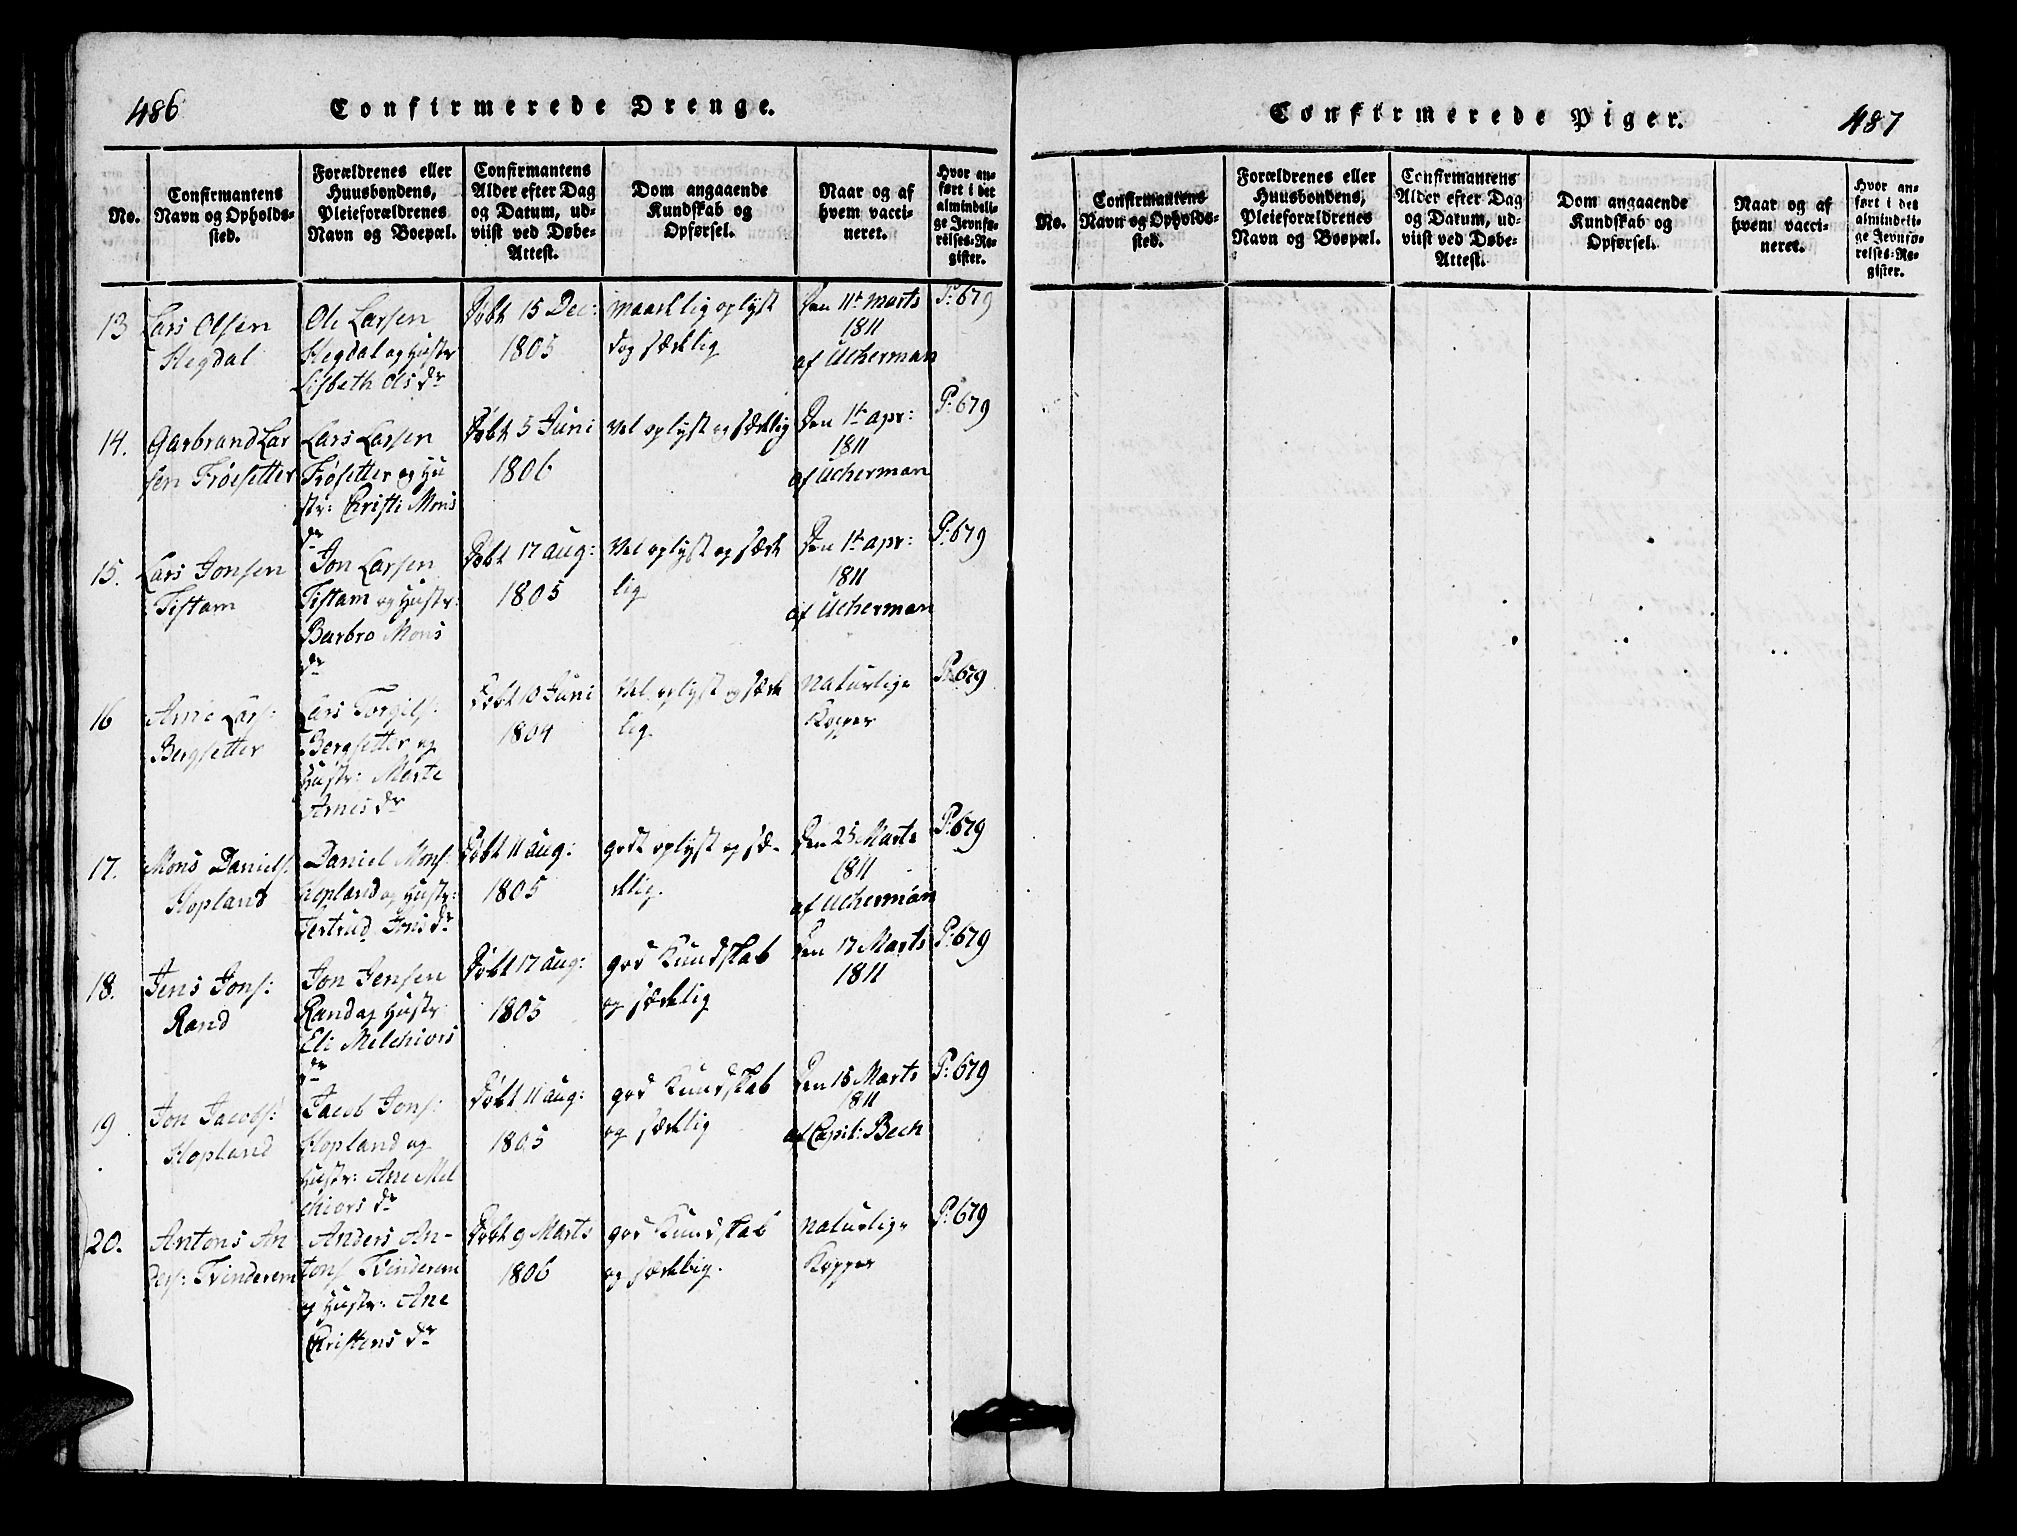 486
Confirmerede Drenge.
No.
Confirmantens
Navn og Opholds-
sted.
Forældrenes eller
Huusbondens,
Pleieforældrenes
Navn og Boepæl.
Confirmantens
Alder efter Dag
og Datum, ud-
viist ved Døbe-
Attest.
Dom angaaende
Kundskab og
Opførsel.
Naar og af
hvem vacci-
neret.
Hvor an-
ført i det
almindeli-
ge Jevnfø-
relses-Re-
gister.
13
Lars Olsen
Hegdal
Ole Larsen
Hegdal og Hustr
Lisbeth Ols dr
Døbt 15 Dec:
1805
maadelig oplyst
dog sædelig
Den 11te marts
1811
af Ucherman
P: 679
14.
Garbrand Lar
sen Frøesetter
Lars Larsen
Frøsetter og Hu
str: Christi Mons
dr
Døbt 5 Juni
1806
Vel oplyst og sædelig
Den 1te apr:
1811
af Ucherman
P: 679
15.
Lars Jonsen
Tistam
Jon Larsen
Tistam og Hustr:
Barbro Mons
dr
Døbt 17 aug:
1805
Vel oplyst og sæde
lig
Den 1te apr:
1811
af Ucherman
P: 679
16
Arne Lars:
Bergsetter
Lars Torgils:
Bergsetter og
Hustr: Marte
Arnes dr
Døbt 10 Juni
1804
Vel oplyst og sæde
lig.
Naturlige
Kopper
P: 679
17.
Mons Daniels:
Hopland
Daniel Mons:
Hopland og Hustr:
Gertrud Jons dr
Døbt 11 aug:
1805
godt oplyst og sæ-
delig.
Den 25 Marts
1811
af Ucherman
P: 679
18.
Jens Jons:
Rand
Jon Jensen
Rand og Hustr
Eli Melchiors
dr
Døbt 17 aug:
1805
god Kundskab
og sædelig
Den 17 Marts
1811
P: 679
19.
Jon Jacobs:
Hopland
Jacob Jons:
Hopland og
Hustr: Ane Mel
chiors dr
Døbt 11 aug:
1805
god Kundskab
og sædelig
Den 15 Marts
1811
af Capit: Bech
P: 679
20.
Antons An
ders: Tvinderem
Anders An-
tons. Tvinderem
og Hustr: Ane
Christens dr
Døbt 9 Marts
1806
god Kundskab
og sædelig.
Naturlige
Kopper
P: 679
Confirmerede Piger.
487
No.
Confirmantens
Navn og Opholds-
sted.
Forældrenes eller
Huusbondens,
Pleieforældrenes
Navn og Boepæl.
Confirmantens
Alder efter Dag
og Datum, ud-
viist ved Døbe-
Attest.
Dom angaaende
Kundskab og
Opførsel.
Naar og af
hvem vacci-
neret.
Hvor an-
ført i det
almindeli-
ge Jevnfø-
relses-Re-
gister.